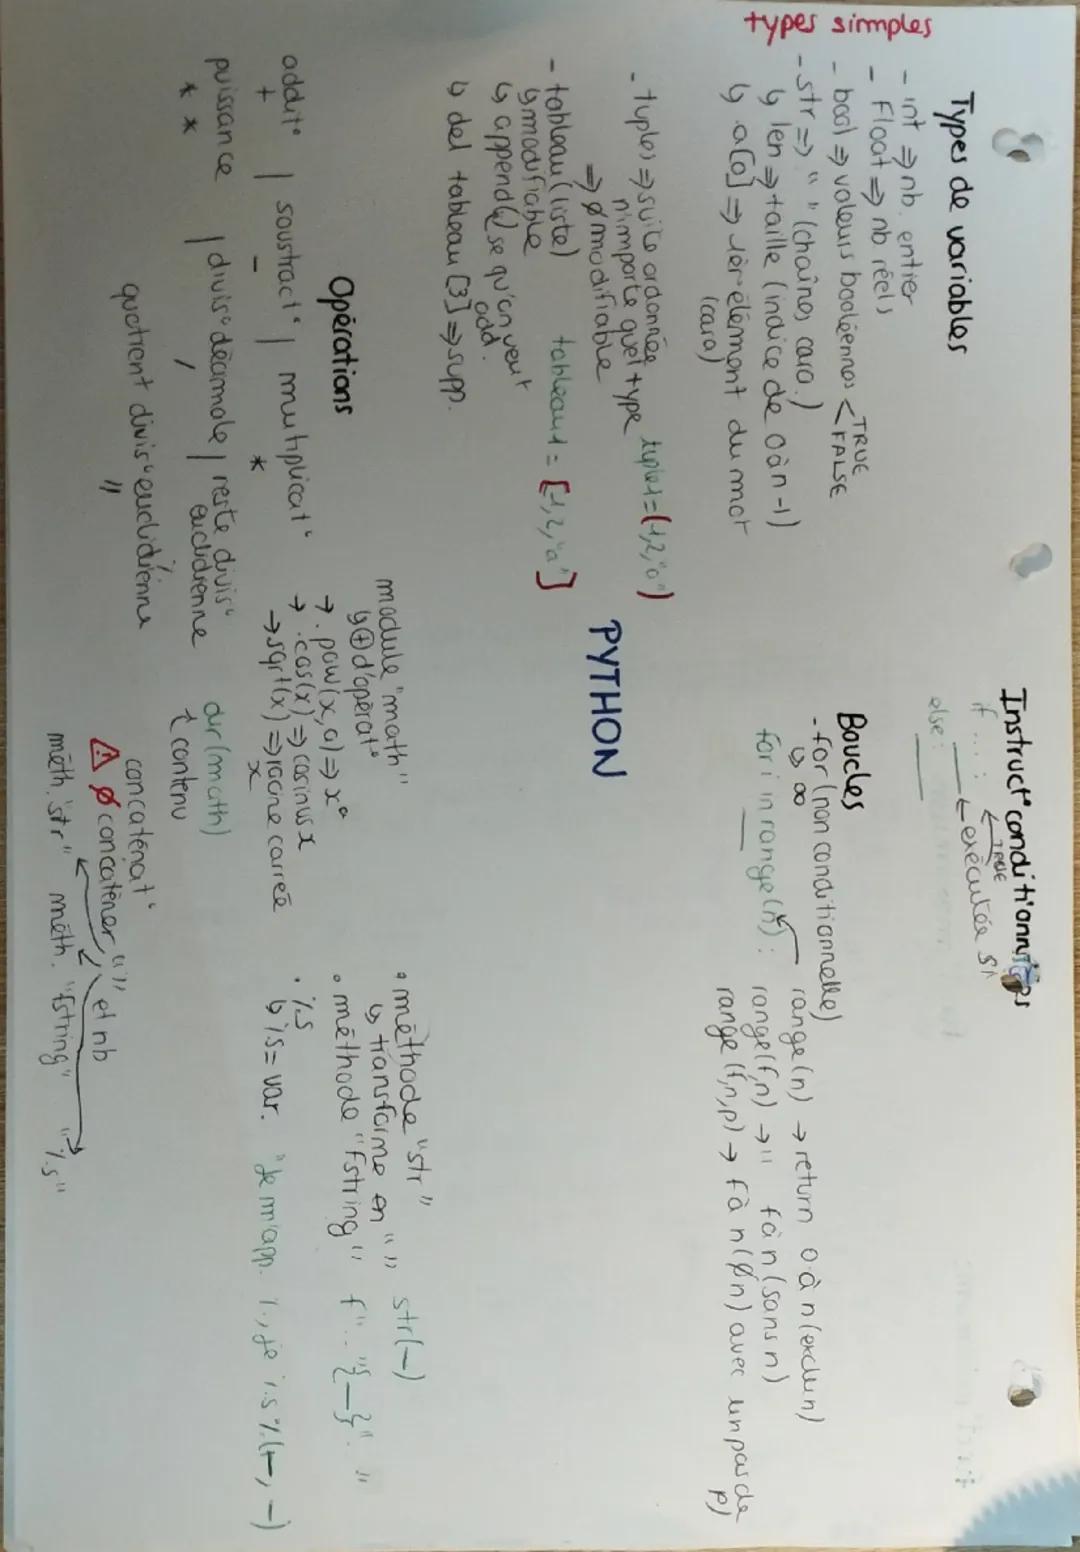 types simples
Types de variables
- int ⇒ nb. entier
- Float ⇒ nb réels
- bool ⇒ valeurs booléennes < TRUE
FALSE
- str ⇒ " " (chaînes cara.)
↳ len ⇒ taille (indice de 0 à n-1)
↳ a[0] ⇒ 1er élément du mot
(cara)
- tuples ⇒ suite ordonnée
n'importe quel type
⇒ ∅ modifiable
tuple1=(1,2,"a")
- tableau (liste)
↳ modifiable
tableau1 = [1,2,"a"]
↳ append() se qu'on veut
add.
↳ del tableau[3] ⇒ supp.
PYTHON
Opérations
addit° | soustract° | multiplicat°
+ - *
puissance | divis° décimale | reste divis°
euclidienne
** /
quotient divis° euclidienne
//
module "math"
↳ ⊕ d'opérat°
→ .pow(x,a) ⇒ xᵃ
→ .cos(x) ⇒ cosinus x
→ sqrt(x) ⇒ racine carrée
x
dir(math)
contenu
Instruct° conditionn
if ... :
TRUE
← exécutée si
else:
Boucles
- for (non conditionnelle)
↳ ∞
for i in range(n):
range(n) → return 0 à n (exclu n)
range(f,n) → " f à n (sans n)
range(f,n,p) → f à n (∅ n) avec un pas de
p)
concaténat°
⚠ ∅ concaténer " " et nb
méth. "str" méth. "fstring" "%s"
• méthode "str"
↳ transforme en " " str(—)
• méthode "fstring" f"... {—}"
• %s
↳ %s = var. "Je m'app. %, je %s %(—, —)